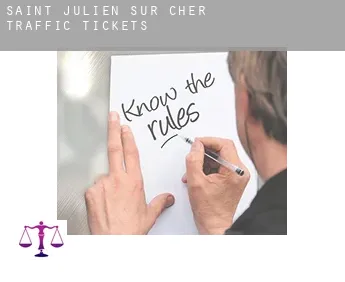 SAINT JULIEN SUR CHER
TRAFFIC TICKETS
Know the
rules